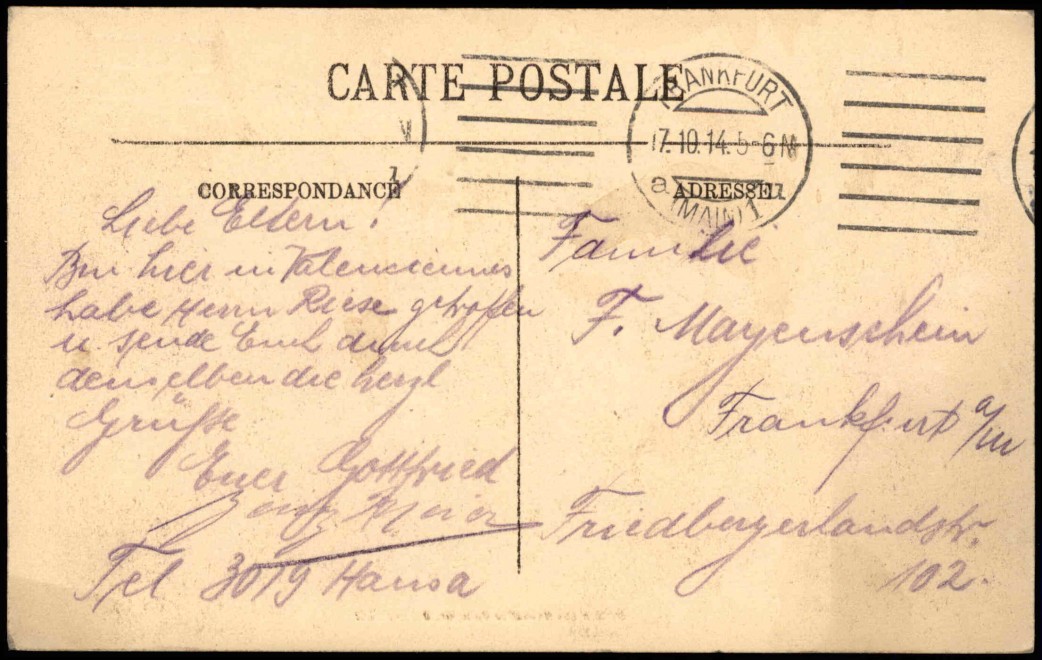 CARTE POSTALE
FRANKFURT
17.10.14. 5-6 N
a (MAIN) 1
CORRESPONDANCE
Liebe Eltern!
Bin hier in Valenciennes
habe Herrn Riese getroffen
u. sende Euch durch
denselben die herzl
Grüße
Euer Gottfried
Tel 3019 Hansa
ADRESSE
Familie
F. Mayenschein
Frankfurt a/m
Friedbergerlandstr.
102.